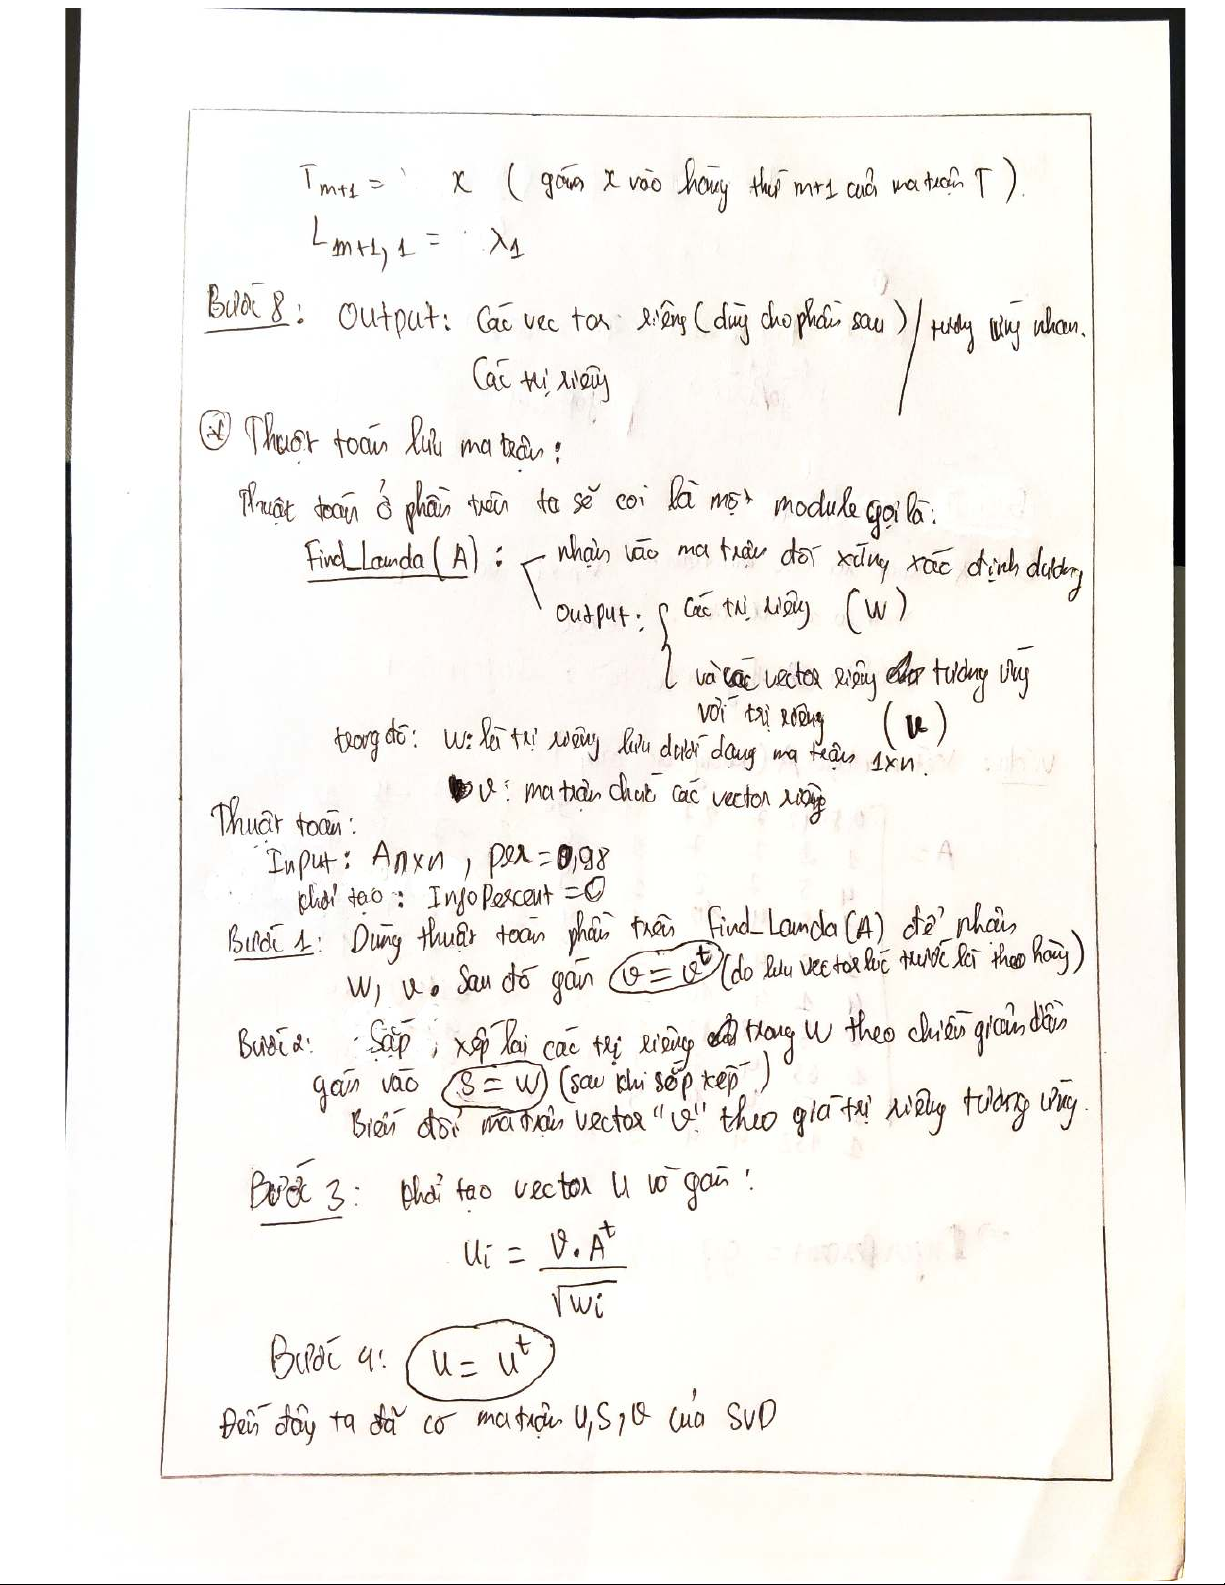 T m+1 = x ( gán x vào hàng thứ m+1 của ma trận T ).
L m+1, 1 = λ1
Bước 8: Output: Các vec tor riêng ( dùng cho phần sau ) / tương ứng nhau.
Các trị riêng
Thuật toán lưu ma trận :
Thuật toán ở phần trên ta sẽ coi là một module gọi là:
Find_Lamda ( A ) : nhận vào ma trận đối xứng xác định dương
output : các trị riêng ( W )
và các vector riêng tương ứng
với trị riêng ( v )
trong đó: W: là trị riêng lưu dưới dạng ma trận 1xn.
v : ma trận chứa các vector riêng
Thuật toán :
Input : A n x n , per = 0,98
khởi tạo : InfoPercent = 0
Bước 1: Dùng thuật toán phần trên Find_Lamda (A) để nhận
W, v. Sau đó gán v = v^t (do lưu vector lúc trước là theo hàng)
Bước 2: Sắp xếp lại các trị riêng trong W theo chiều giảm dần
gán vào S = W (sau khi sắp xếp )
Biến đổi ma trận vector "v" theo giá trị riêng tương ứng.
Bước 3: khởi tạo vector U và gán :
ui = v . A^t / √wi
Bước 4: u = u^t
Đến đây ta đã có ma trận U, S, v của SVD